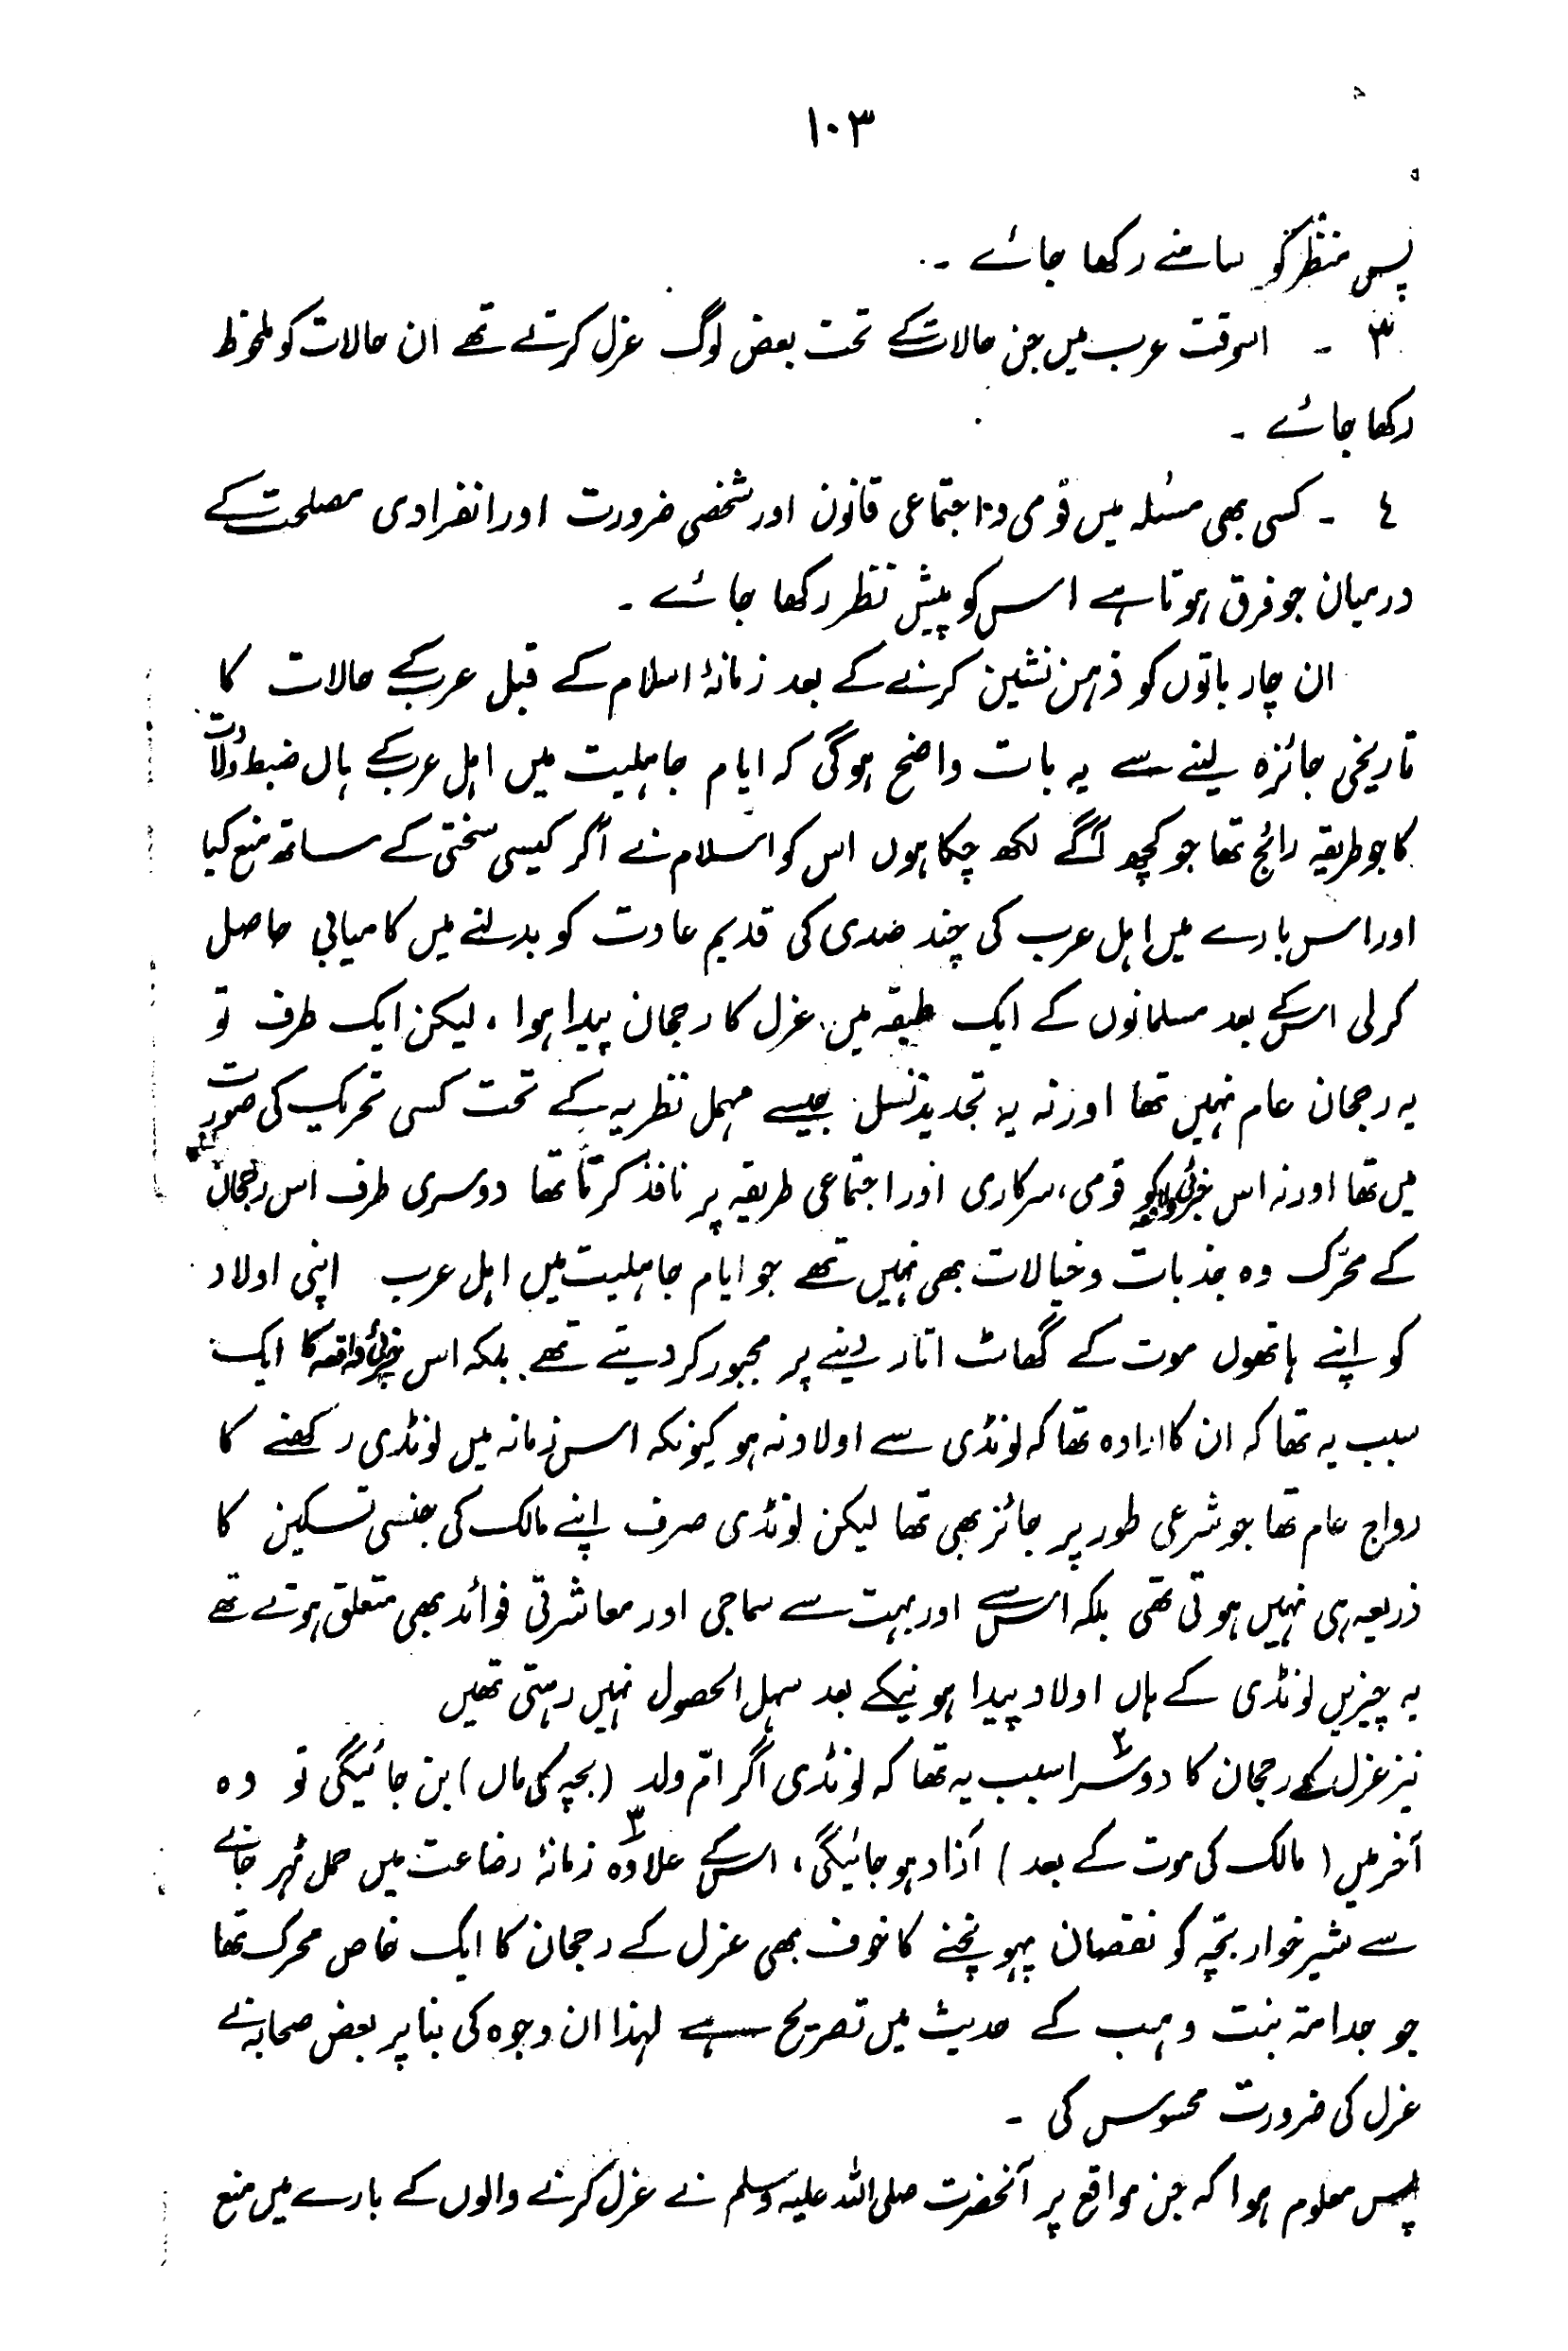 ۱۰۳
پس منظر کو سامنے رکھا جائے ۔
۳ ۔ اسوقت عرب میں جن حالات کے تحت بعض لوگ عزل کرتے تھے ان حالات کو ملحوظ
رکھا جائے ۔
٤ ۔ کسی بھی مسئلہ میں قومی و اجتماعی قانون اور شخصی ضرورت اور انفرادی مصلحت کے
درمیان جو فرق ہوتا ہے اس کو پیش نظر رکھا جائے ۔
ان چار باتوں کو ذہن نشین کرنے کے بعد زمانۂ اسلام کے قبل عرب کے حالات کا
تاریخی جائزہ لینے سے یہ بات واضح ہوگی کہ ایام جاہلیت میں اہل عرب کے ہاں ضبط ولادت
کا جو طریقہ رائج تھا جو کچھ آگے لکھ چکا ہوں اس کو اسلام نے اگر کیسی سختی کے ساتھ منع کیا
اور اس بارے میں اہل عرب کی چند صدی کی قدیم عادت کو بدلنے میں کامیابی حاصل
کرلی اس کے بعد مسلمانوں کے ایک طبقہ میں عزل کا رجحان پیدا ہوا ، لیکن ایک طرف تو
یہ رجحان عام نہیں تھا اور نہ یہ تجدید نسل جیسے مہمل نظریہ کے تحت کسی تحریک کی صورت
میں تھا اور نہ اس جزئی واقعہ کو قومی، سرکاری اور اجتماعی طریقہ پر نافذ کرتا تھا دوسری طرف اس رجحان
کے محرّک وہ جذبات و خیالات بھی نہیں تھے جو ایام جاہلیت میں اہل عرب اپنی اولاد
کو اپنے ہاتھوں موت کے گھاٹ اتار دینے پر مجبور کر دیتے تھے بلکہ اس جزئی واقعہ کا ایک
سبب یہ تھا کہ ان کا ارادہ تھا کہ لونڈی سے اولاد نہ ہو کیونکہ اس زمانہ میں لونڈی رکھنے کا
رواج عام تھا جو شرعی طور پر جائز بھی تھا لیکن لونڈی صرف اپنے مالک کی جنسی تسکین کا
ذریعہ ہی نہیں ہوتی تھی بلکہ اس سے اور بہت سے سماجی اور معاشرتی فوائد بھی متعلق ہوتے تھے
یہ چیزیں لونڈی کے ہاں اولاد پیدا ہونیکے بعد سہل الحصول نہیں رہتی تھیں
نیز عزل کے رجحان کا دوسرا ۲ سبب یہ تھا کہ لونڈی اگر امّ ولد (بچہ کی ماں) بن جائیگی تو وہ
آخر میں (مالک کی موت کے بعد) آزاد ہو جائیگی، اس کے علاوہ ۳ زمانۂ رضاعت میں حمل ٹہر جانے
سے شیر خوار بچّہ کو نقصان پہونچنے کا خوف بھی عزل کے رجحان کا ایک خاص محرک تھا
جو جدامۃ بنت وہب کے حدیث میں تصریح ہے لہذا ان وجوہ کی بنا پر بعض صحابہ نے
عزل کی ضرورت محسوس کی ۔
پس معلوم ہوا کہ جن مواقع پر آنحضرت صلی اللہ علیہ وسلم نے عزل کرنے والوں کے بارے میں منع